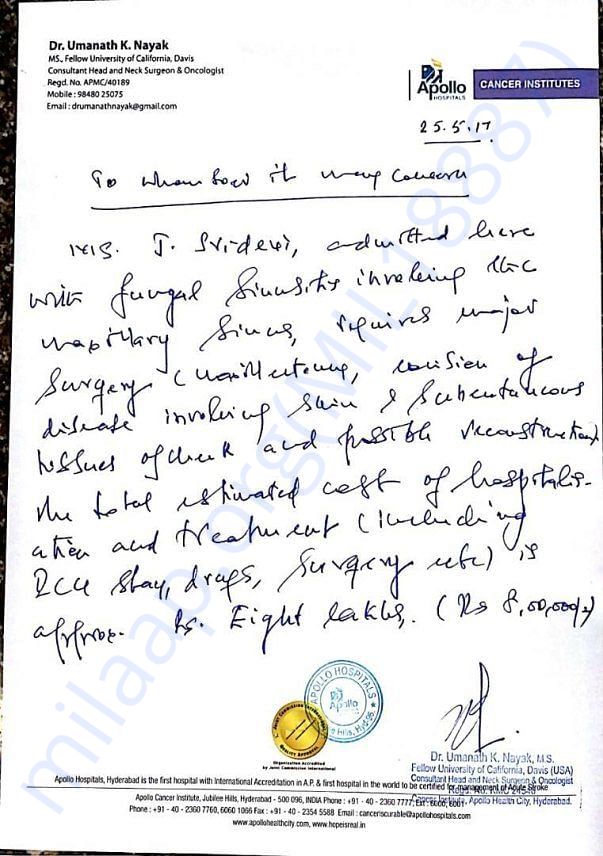 Dr. Umanath K. Nayak
MS., Fellow University of California, Davis
Consultant Head and Neck Surgeon & Oncologist
Regd. No. APMC/40189
Mobile : 98480 25075
Email : drumanathnayak@gmail.com
Apollo
HOSPITALS
CANCER INSTITUTES
25.5.17
To whomsoever it may concern
Mrs. J. Sridevi, admitted here
with fungal Sinusitis involving the
maxillary Sinus, requires major
Surgery (Maxillectomy, excision of
disease involving skin & subcutaneous
tissues of cheek and possible reconstruction)
The total estimated cost of hospitalis-
ation and treatment (including
ICU stay, drugs, Surgery etc) is
approx. Rs. Eight lakhs. (Rs 8,00,000/-)
milaap.org(Mil_18887)
APOLLO HOSPITALS
Apollo
Organization Accredited
by Joint Commission International
Dr. Umanath K. Nayak, M.S.
Fellow University of California, Davis (USA)
Consultant Head and Neck Surgeon & Oncologist
Apollo Hospitals, Hyderabad is the first hospital with International Accreditation in A.P. & first hospital in the world to be certified for management of Acute Stroke
Cancer Institute, Apollo Health City, Hyderabad.
Apollo Cancer Institute, Jubilee Hills, Hyderabad - 500 096, INDIA Phone : +91 - 40 - 2360 7777, Ext : 6000, 6001
Phone : +91 - 40 - 2360 7760, 6060 1066 Fax : +91 - 40 - 2354 5588 Email : canceriscurable@apollohospitals.com
www.apollohealthcity.com, www.hopeisreal.in